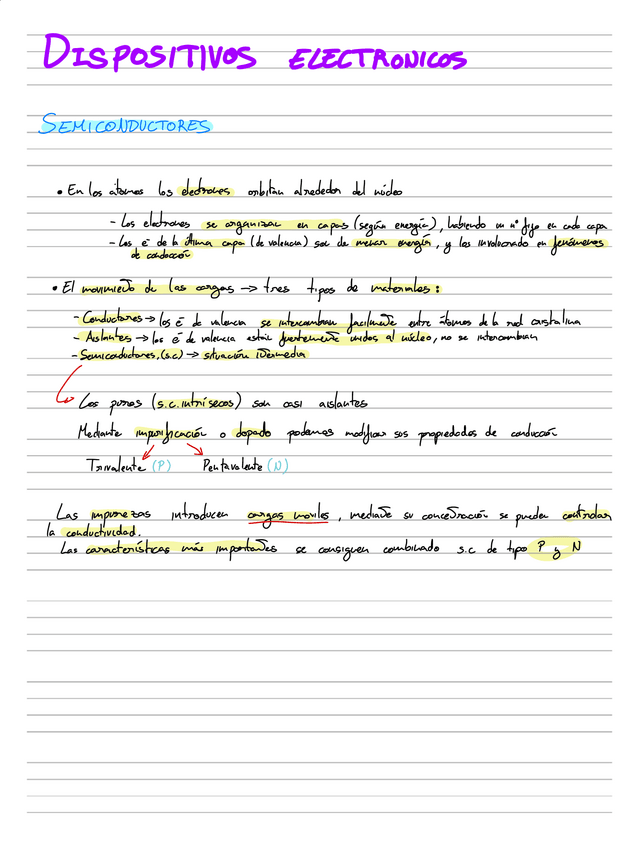 DISPOSITIVOS ELECTRONICOS
SEMICONDUCTORES
• En los átomos los electrones orbitan alrededor del núcleo
- Los electrones se organizan en capas (según energía), habiendo un nº fijo en cada capa
- Los e⁻ de la última capa (de valencia) son de menor energía, y los involucrado en fenómenos
de conducción
• El movimiento de las cargas → tres tipos de materiales:
- Conductores → los e⁻ de valencia se intercambian facilmente entre átomos de la red cristalina
- Aislantes → los e⁻ de valencia están fuertemente unidos al núcleo, no se intercambian
- Semiconductores, (s.c) → situación intermedia
Los puros (s.c. intrísecos) son casi aislantes
Mediante impurificación o dopado podemos modificar sus propiedades de conducción
Trivalente (P) Pentavalente (N)
Las impurezas introducen cargas moviles, mediante su concentración se pueden controlar
la conductividad.
Las características más importantes se consiguen combinado s.c de tipo P y N